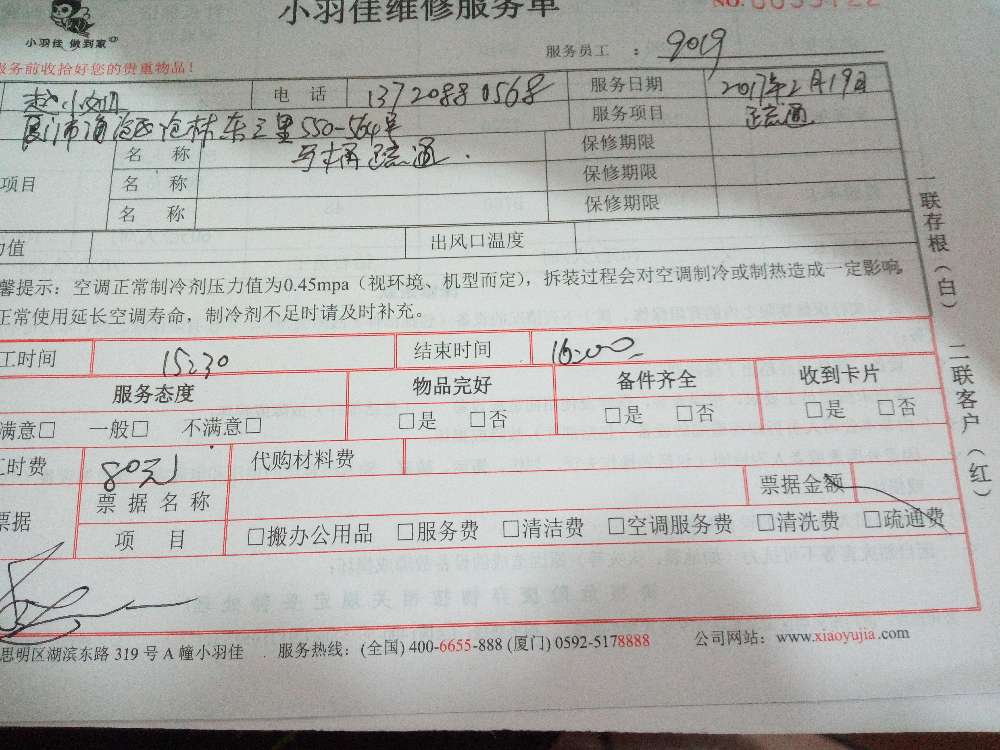 小羽佳维修服务单
小羽佳 做到家
服务员工 : 9019
服务前收拾好您的贵重物品!
电 话 13720880568 服务日期 2017年2月19日
服务项目 疏通
东三里550-564号
名 称 马桶疏通. 保修期限
项目 名 称 保修期限
名 称 保修期限
力值 出风口温度
馨提示:空调正常制冷剂压力值为0.45mpa(视环境、机型而定),拆装过程会对空调制冷或制热造成一定影响,
正常使用延长空调寿命,制冷剂不足时请及时补充。
工时间 15:30 结束时间 16:00
服务态度 物品完好 备件齐全 收到卡片
满意□ 一般□ 不满意□ □是 □否 □是 □否 □是 □否
工时费 80元 代购材料费
票据 票 据 名 称 票据金额
项 目 □搬办公用品 □服务费 □清洁费 □空调服务费 □清洗费 □疏通费
思明区湖滨东路 319 号 A 幢小羽佳 服务热线:(全国) 400-6655-888 (厦门) 0592-5178888 公司网站:www.xiaoyujia.com
一联存根(白) 二联客户(红)